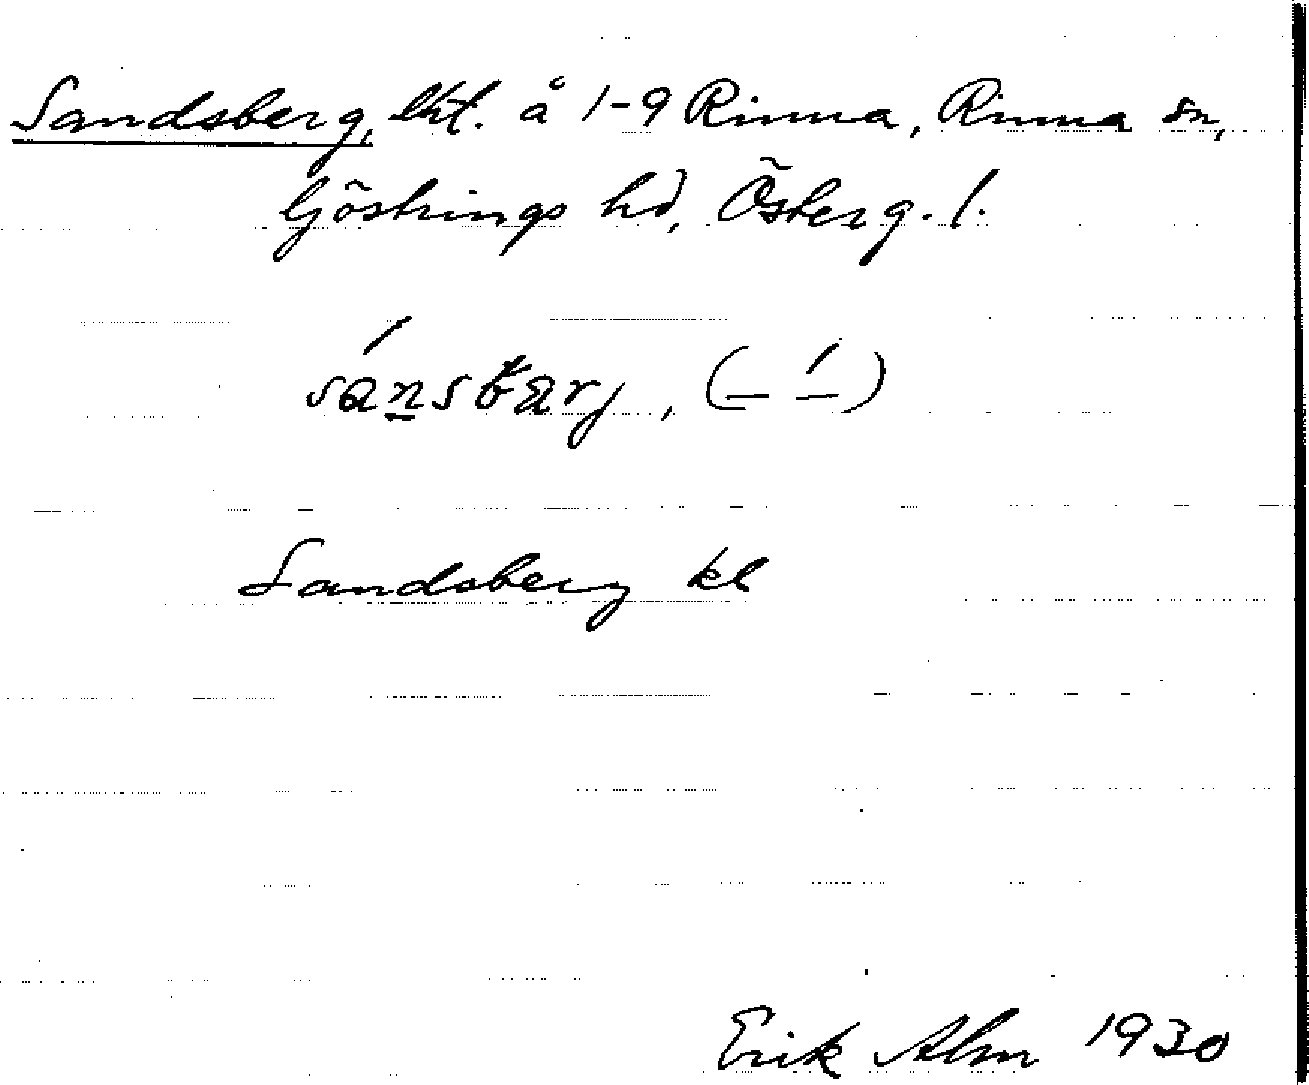 Sandsberg, lht. å 1-9 Rinna, Rinna sn,
Göstrings hd, Österg. l.
sánsbärj, (– ´–)
Sandsberg kl
Erik Alm 1930